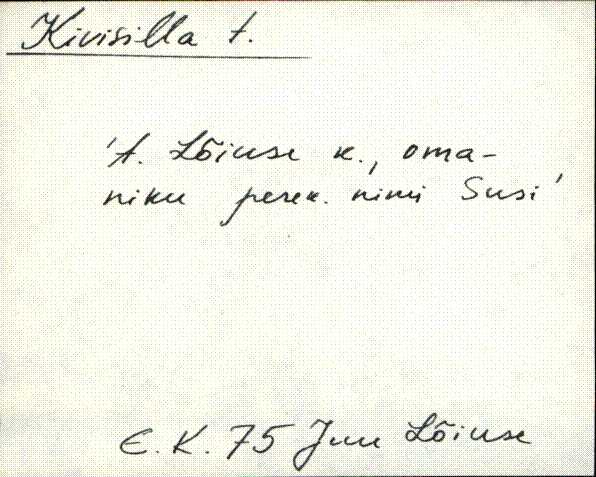 Kivisilla t.
't. Lõiuse k., oma-
niku perek. nimi Susi'
E. K. 75 Juu Lõiuse